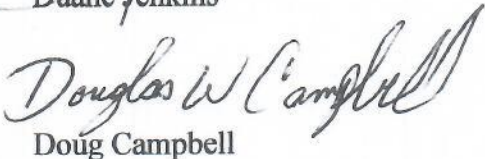 Duane Jenkins
Douglas W Campbell
Doug Campbell